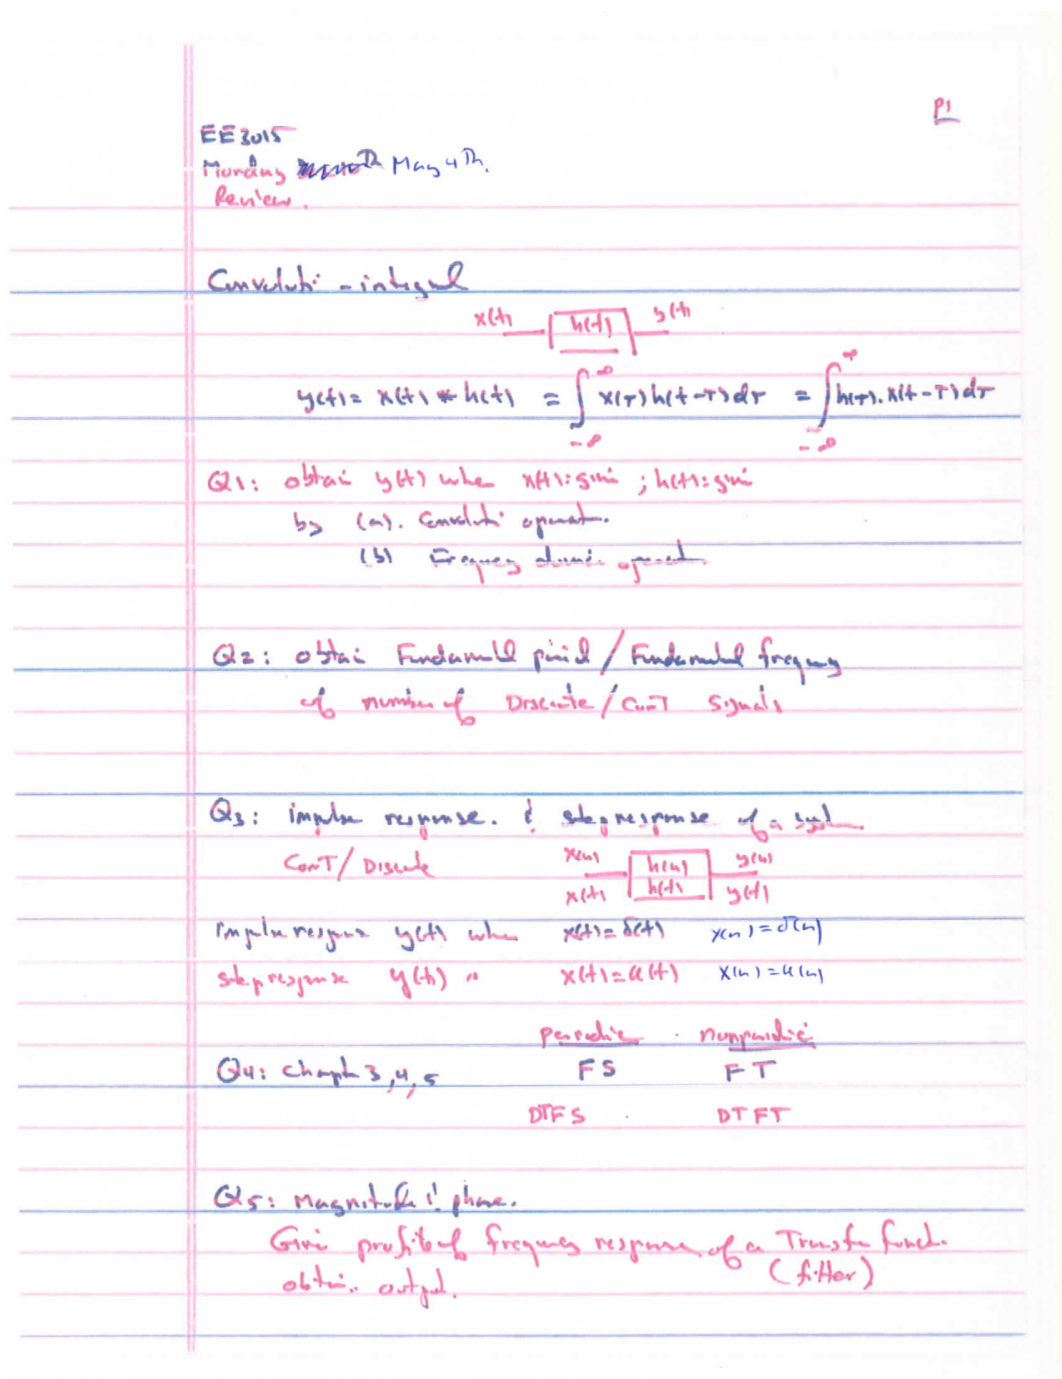 P1
EE3015
Monday May 4Th.
Review.
Convoluti - integral
x(t) h(t) y(t)
y(t) = x(t) * h(t) = ∫_{-∞}^{∞} x(τ) h(t-τ) dτ = ∫_{-∞}^{∞} h(τ). x(t-τ) dτ
Q1: obtai y(t) when x(t): givi ; h(t): givi
by (a). Convoluti operat.
(b) Frequency domai operat
Q2: obtai Fundamentl period / Fundamental frequency
of number of Discrete / ConT Signals
Q3: impulse response. & step response of a syst
ConT / Discrete x(n) h(n) y(n)
x(t) h(t) y(t)
Impulse respons y(t) when x(t) = δ(t) x(n) = δ(n)
step response y(t) " x(t) = u(t) x(n) = u(n)
periodic nonperiodic
Q4: Chapt 3, 4, 5 FS FT
DTFS DTFT
Q5: Magnitude & phase.
Givi profile of frequency response of a Transfer funct.
obtai. output. (filter)